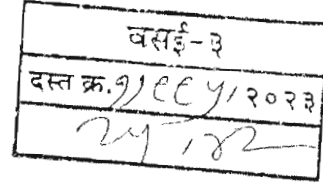 वसई-३
दस्त क्र. ९१९९५/२०२३
२५/४२